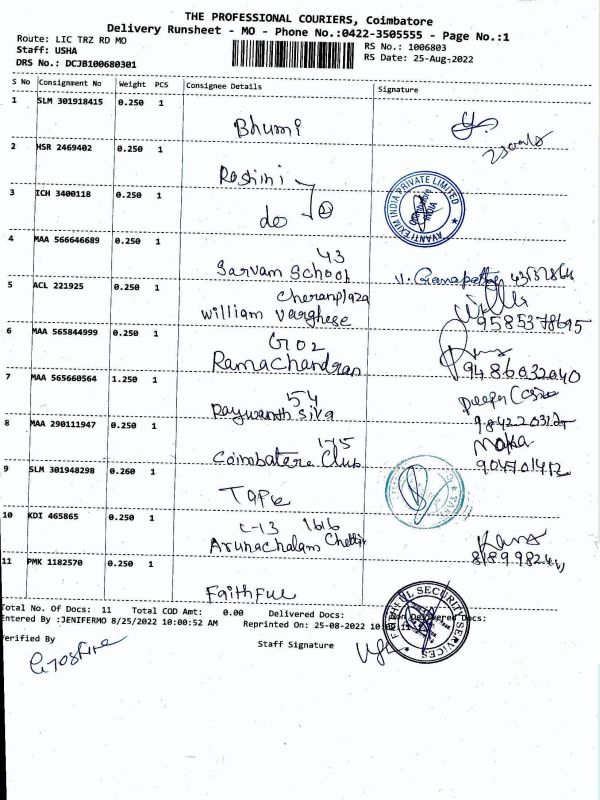 THE PROFESSIONAL COURIERS, Coimbatore
Delivery Runsheet - MO - Phone No.:0422-3505555 - Page No.:1
Route: LIC TRZ RD MO
RS No.: 1006803
Staff: USHA
RS Date: 25-Aug-2022
DRS No.: DCJB100680301
S No Consignment No Weight PCS Consignee Details Signature
1 SLM 301918415 0.250 1
Bhumi
2 HSR 2469402 0.250 1
Roshini
3 ICH 3400118 0.250 1
do 2
AVANTI EXIM INDIA PRIVATE LIMITED
COIMBATORE INDIA
4 MAA 566646689 0.250 1
43
Sarvam School
V. Ganapathy
5 ACL 221925 0.250 1
Cheranplaza
William Varghese
9585378695
6 MAA 565844999 0.250 1
G02
Ramachandran
9486032040
7 MAA 565660564 1.250 1
54
Siva
8 MAA 290111947 0.250 1
175
Coimbatore Club
9 SLM 301948298 0.260 1
10 KDI 465865 0.250 1
C-13 1616
Arunachalam Chettir
11 PMK 1182570 0.250 1
Faithful
FAITHFUL SECURITY SERVICES
Total No. Of Docs: 11 Total COD Amt: 0.00 Delivered Docs: Non Delivered Docs:
Entered By :JENIFERMO 8/25/2022 10:00:52 AM Reprinted On: 25-08-2022
Verified By
Staff Signature